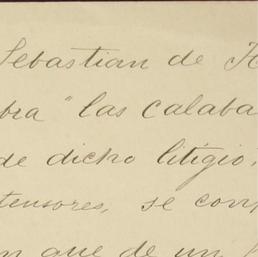 Sebastian de
bra " las calaba
de dicho litigio,
tensores, se conf
que de un